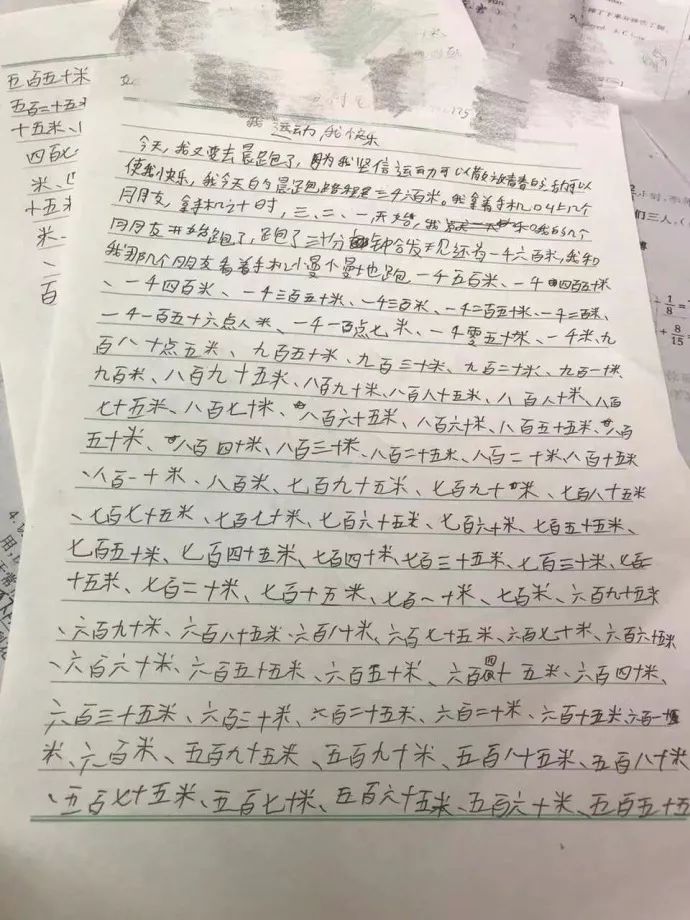 我运动,我快乐
今天,我又要去晨跑了,因为我坚信运动可以散放青春的活力可以
使我快乐,我今天的晨跑路程是三千六百米。我拿着手机,叫上几个
同朋友,拿手机计时,三、二、一开始,我和我的几个
同朋友开始跑了,跑了三十分钟会发现还有一千六百米,我和
我那几个同朋友看着手机小曼小曼也跑一千五百米、一千四百五十米
、一千四百米、一千三百五十米、一千三百米、一千二百五十米、一千二百米、
一千一百五十六点八米、一千一百点七米、一千零五十米、一千米、九
百八十点五米、九百五十米、九百三十米、九百二十米、九百一十米
九百米、八百九十五米、八百九十米、八百八十五米、八百八十米、八百
七十五米、八百七十米、八百六十五米、八百六十米、八百五十五米、八百
五十米、八百四十米、八百三十米、八百二十五米、八百二十米、八百十五米
、八百一十米、八百米、七百九十五米、七百九十米、七百八十五米
、七百七十五米、七百七十米、七百六十五米、七百六十米、七百五十五米、
七百五十米、七百四十五米、七百四十米、七百三十五米、七百三十米、七百二
十五米、七百二十米、七百十五米、七百一十米、七百米、六百九十五米
、六百九十米、六百八十五米、六百八十米、六百七十五米、六百七十米、六百六十五米
、六百六十米、六百五十五米、六百五十米、六百四十五米、六百四十米、
六百三十五米、六百三十米、六百二十五米、六百二十米、六百十五米、六百一十
米、六百米、五百九十五米、五百九十米、五百八十五米、五百八十米
、五百七十五米、五百七十米、五百六十五米、五百六十米、五百五十五
五百五十米
五百二十五米
十五米、
四百七
米、四
十五米
米
、二
百